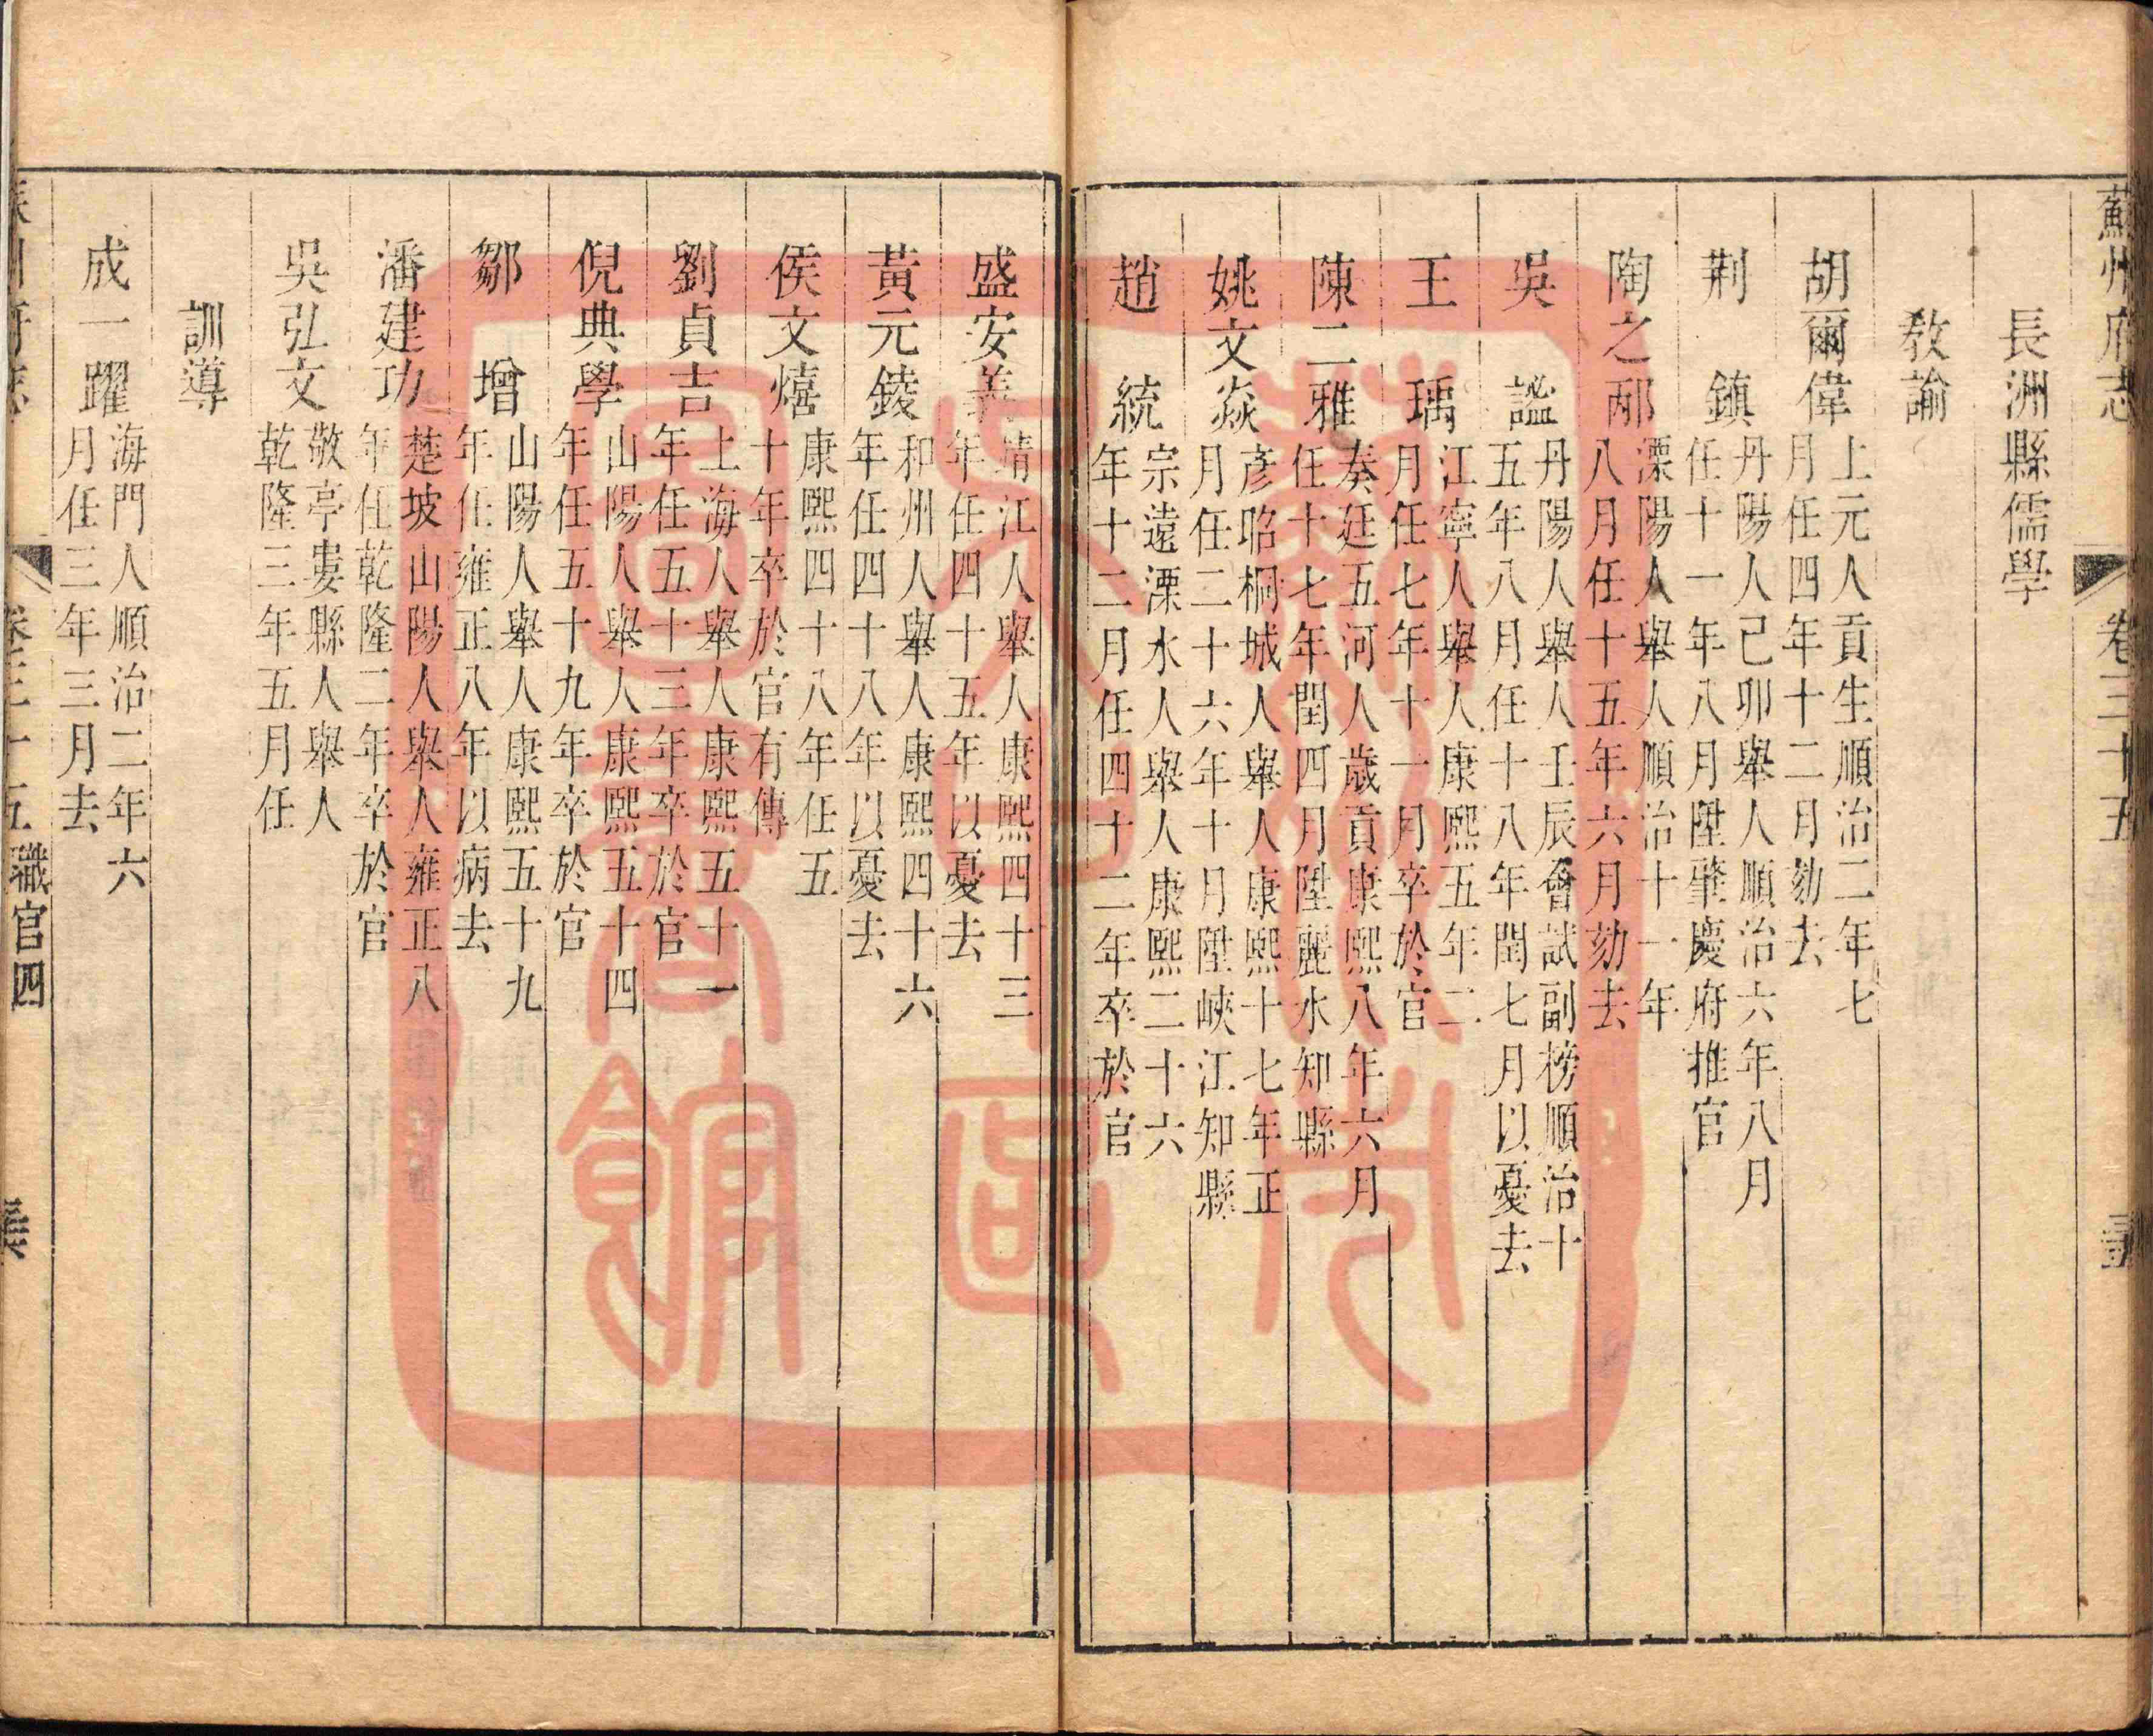 蘇州府志 卷三十五
長洲縣儒學
敎諭
胡爾偉 上元人貢生順治二年七
月任四年十二月劾去
荆 鎮 丹陽人己卯舉人順治六年八月
任十一年八月陞肇慶府推官
陶之邴 溧陽人舉人順治十一年
八月任十五年六月劾去
吳 謐 丹陽人舉人壬辰會試副榜順治十
五年八月任十八年閏七月以憂去
王 瑀 江寧人舉人康熙五年二
月任七年十一月卒於官
陳二雅 奏廷五河人歲貢康熙八年六月
任十七年閏四月陞麗水知縣
姚文焱 彥昭桐城人舉人康熙十七年正
月任二十六年十月陞峽江知縣
趙 統 宗遠溧水人舉人康熙二十六
年十二月任四十二年卒於官
盛安義 靖江人舉人康熙四十三
年任四十五年以憂去
黃元錂 和州人舉人康熙四十六
年任四十八年以憂去
侯文熺 康熙四十八年任五
十年卒於官有傳
劉貞吉 上海人舉人康熙五十一
年任五十三年卒於官
倪典學 山陽人舉人康熙五十四
年任五十九年卒於官
鄒 增 山陽人舉人康熙五十九
年任雍正八年以病去
潘建功 楚坡山陽人舉人雍正八
年任乾隆二年卒於官
吳弘文 敬亭婁縣人舉人
乾隆三年五月任
訓導
成一躍 海門人順治二年六
月任三年三月去
卷三十五 職官四